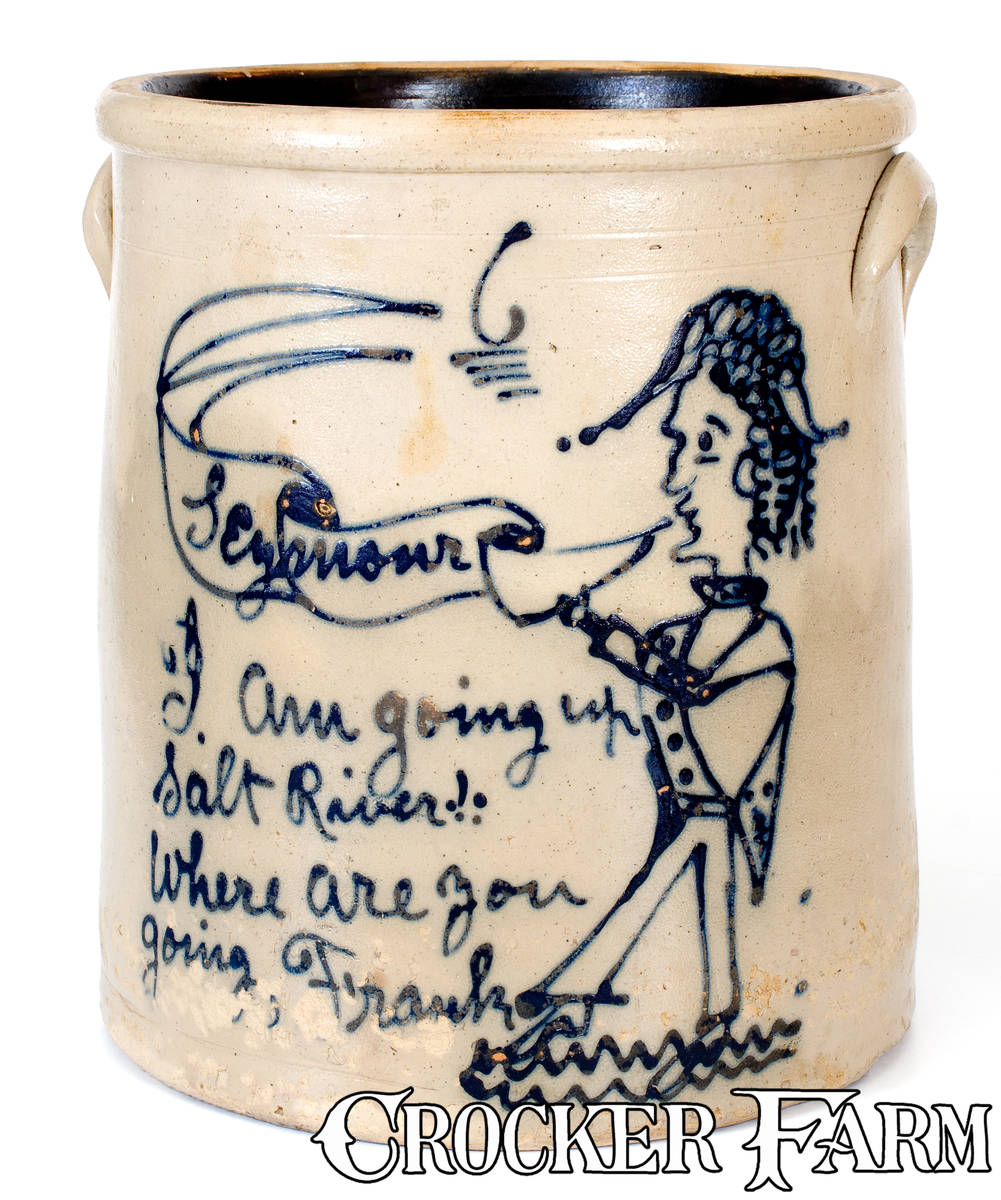 6
Seymour
I am going up
Salt River!!
Where are you
going, Frank
CROCKER FARM